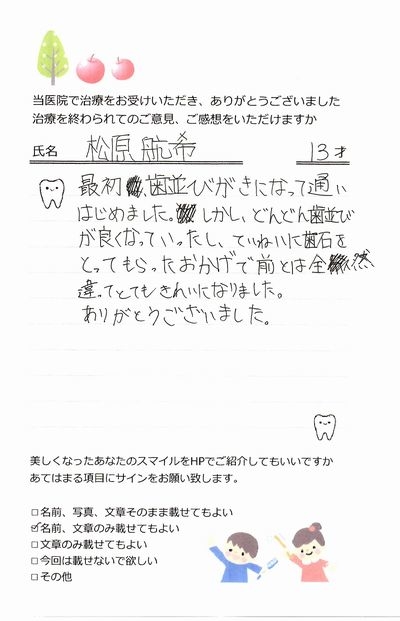 当医院で治療をお受けいただき、ありがとうございました
治療を終わられてのご意見、ご感想をいただけますか
氏名 松原 航希 13才
最初歯並びがきになって通い
はじめました。しかし、どんどん歯並び
が良くなっていったし、ていねいに歯石を
とってもらったおかげで前とは全然
違ってとてもきれいになりました。
ありがとうございました。
美しくなったあなたのスマイルをHPでご紹介してもいいですか
あてはまる項目にサインをお願い致します。
□名前、写真、文章そのまま載せてもよい
☑名前、文章のみ載せてもよい
□文章のみ載せてもよい
□今回は載せないで欲しい
□その他